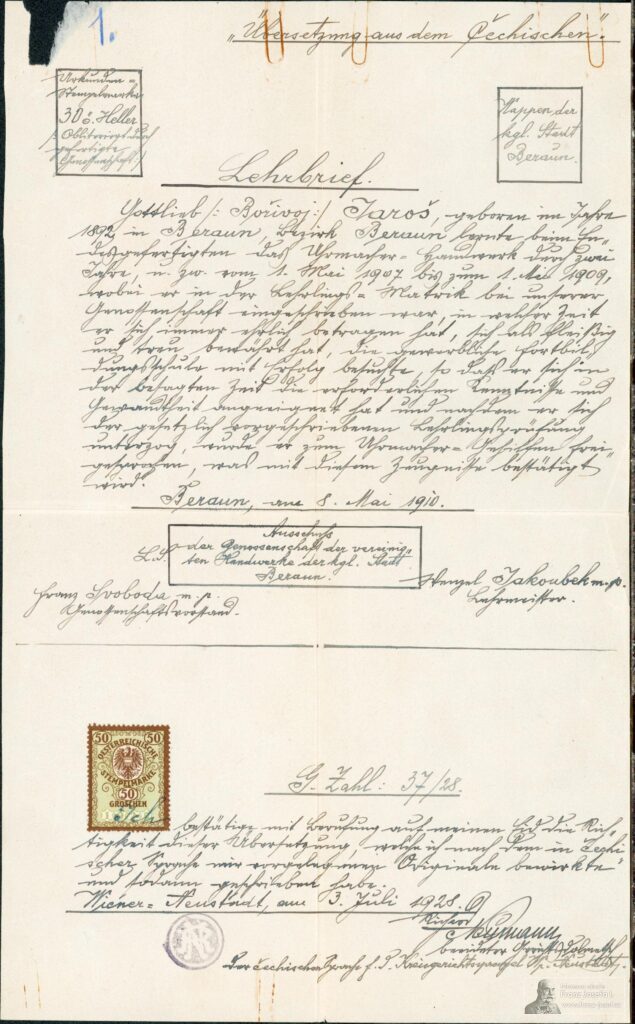 1.
„Übersetzung aus dem Čechischen“.
Urkunden=
Stempelmarke
30 ö. Heller
/: Obliterirt durch
gefertigte
Genossenschaft :/
Wappen der
kgl. Stadt
Beraun.
Lehrbrief.
Gottlieb /: Bořivoj :/ Jaroš, geboren im Jahre
1892 in Beraun, Bezirk Beraun lernte beim En-
desgefertigten das Uhrmacher-Handwerk durch zwei
Jahre, u. zw. vom 1. Mai 1907 bis zum 1. Mai 1909,
wobei er in der Lehrlings=Matrik bei unserer
Genossenschaft eingeschrieben war, in welcher Zeit
er sich immer ehrlich betragen hat, sich als fleißig
und treu bewährt hat, die gewerbliche Fortbil-
dungsschule mit Erfolg besuchte, so daß er sich in
der besagten Zeit die erforderlichen Kenntnisse und
Gewandtheit angeeignet hat und nachdem er sich
der gesetzlich vorgeschriebenen Lehrlingsprüfung
unterzog, wurde er zum Uhrmacher=Gehilfen frei-
gesprochen, was mit diesem Zeugnisse bestätigt
wird.
Beraun, am 8. Mai 1910.
Ausschuss
der Genossenschaft der vereinig-
ten Handwerke der kgl. Stadt
Beraun.
L.S.
Wenzel Jakoubek m.p.
Lehrmeister.
Franz Svoboda m.p.
Genossenschaftsvorstand.
50 50
OESTERREICHISCHE
STEMPELMARKE
50
GROSCHEN
G. Zahl: 37/28.
Ich bestätige mit Berufung auf meinen Eid die Rich-
tigkeit dieser Übersetzung, welche ich nach dem in čechi-
scher Sprache mir vorgelegenen Originale bewirkte
und sodann geschrieben habe.
Wiener=Neustadt, am 3. Juli 1928.
Richard
Neumann
beeideter Gerichtsdolmetsch
der čechischen Sprache f. d. Kreisgerichtssprengel Wr. Neustadt.
Franz Joseph I.